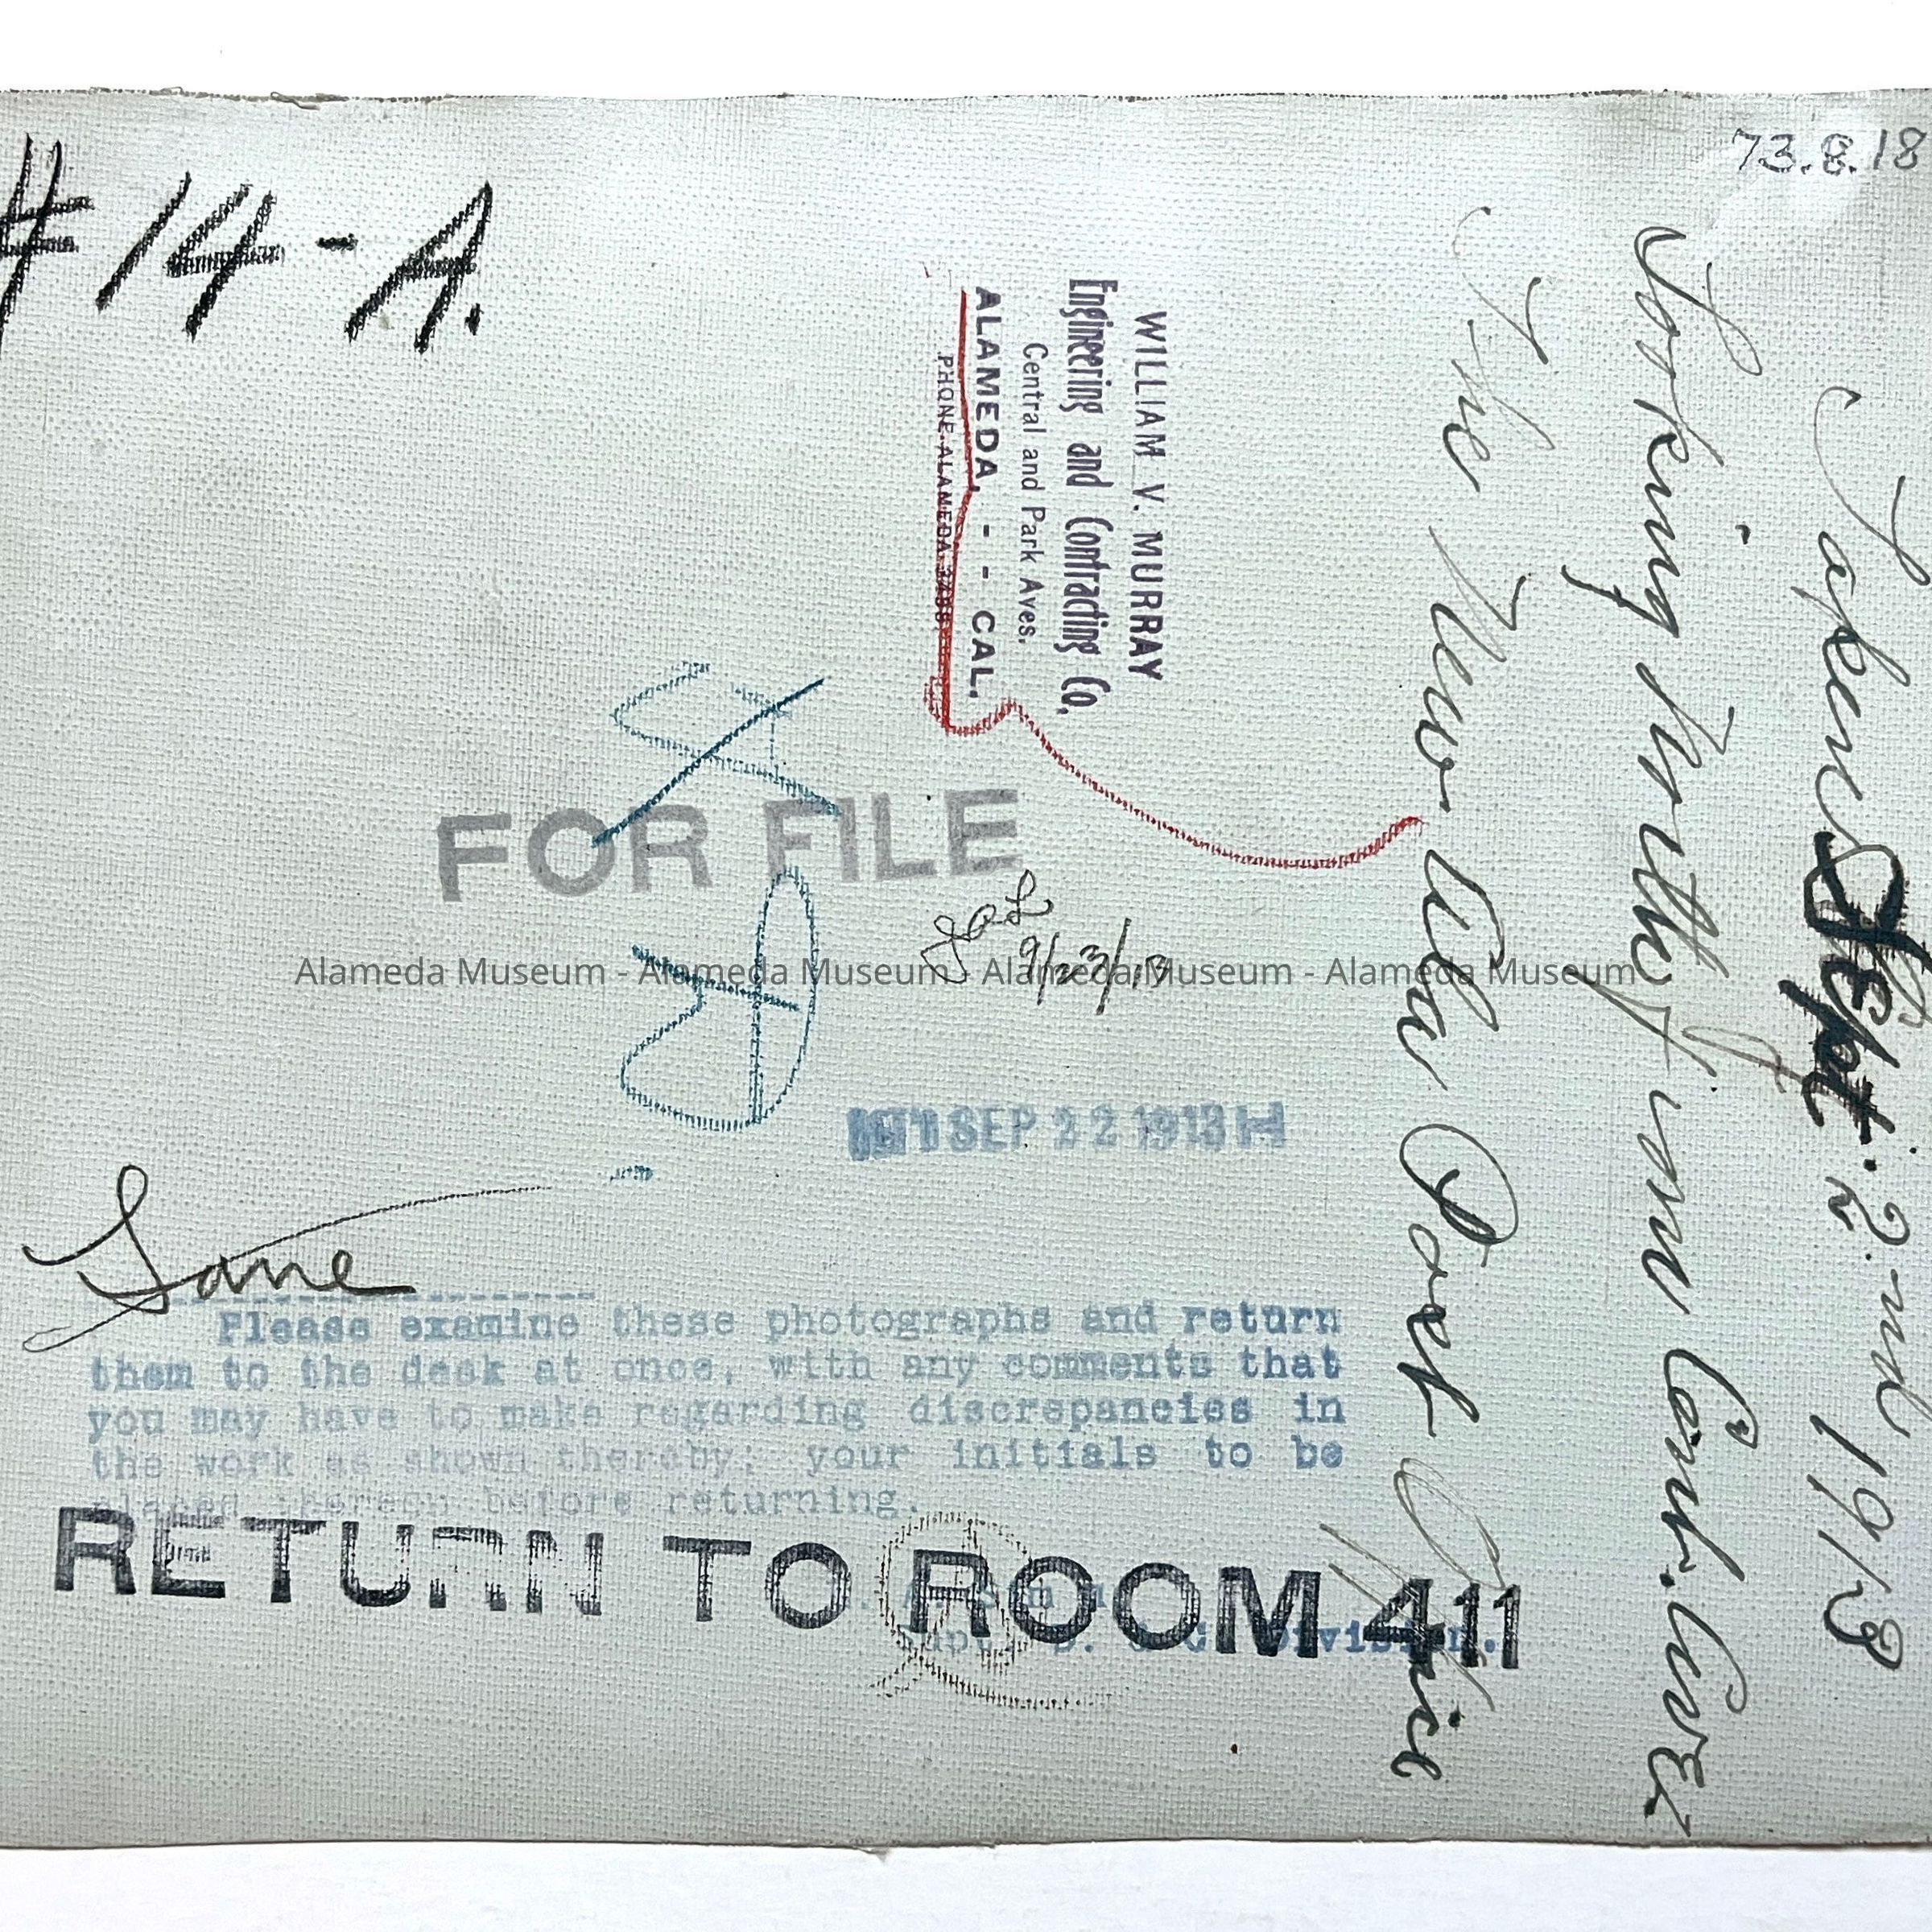 73.8.18
#14-A.
Taken Sept. 2nd 1913
Looking North from Cent. Ave
The New Ala Post Office
WILLIAM V. MURRAY
Engineering and Contracting Co.
Central and Park Aves.
ALAMEDA, - - CAL.
PHONE ALAMEDA
FOR FILE
9/23/13
Alameda Museum - Alameda Museum - Alameda Museum - Alameda Museum
SEP 22 1913
Please examine these photographs and return
them to the desk at once, with any comments that
you may have to make regarding discrepancies in
the work as shown thereby; your initials to be
placed thereon before returning.
RETURN TO ROOM 411
Division.